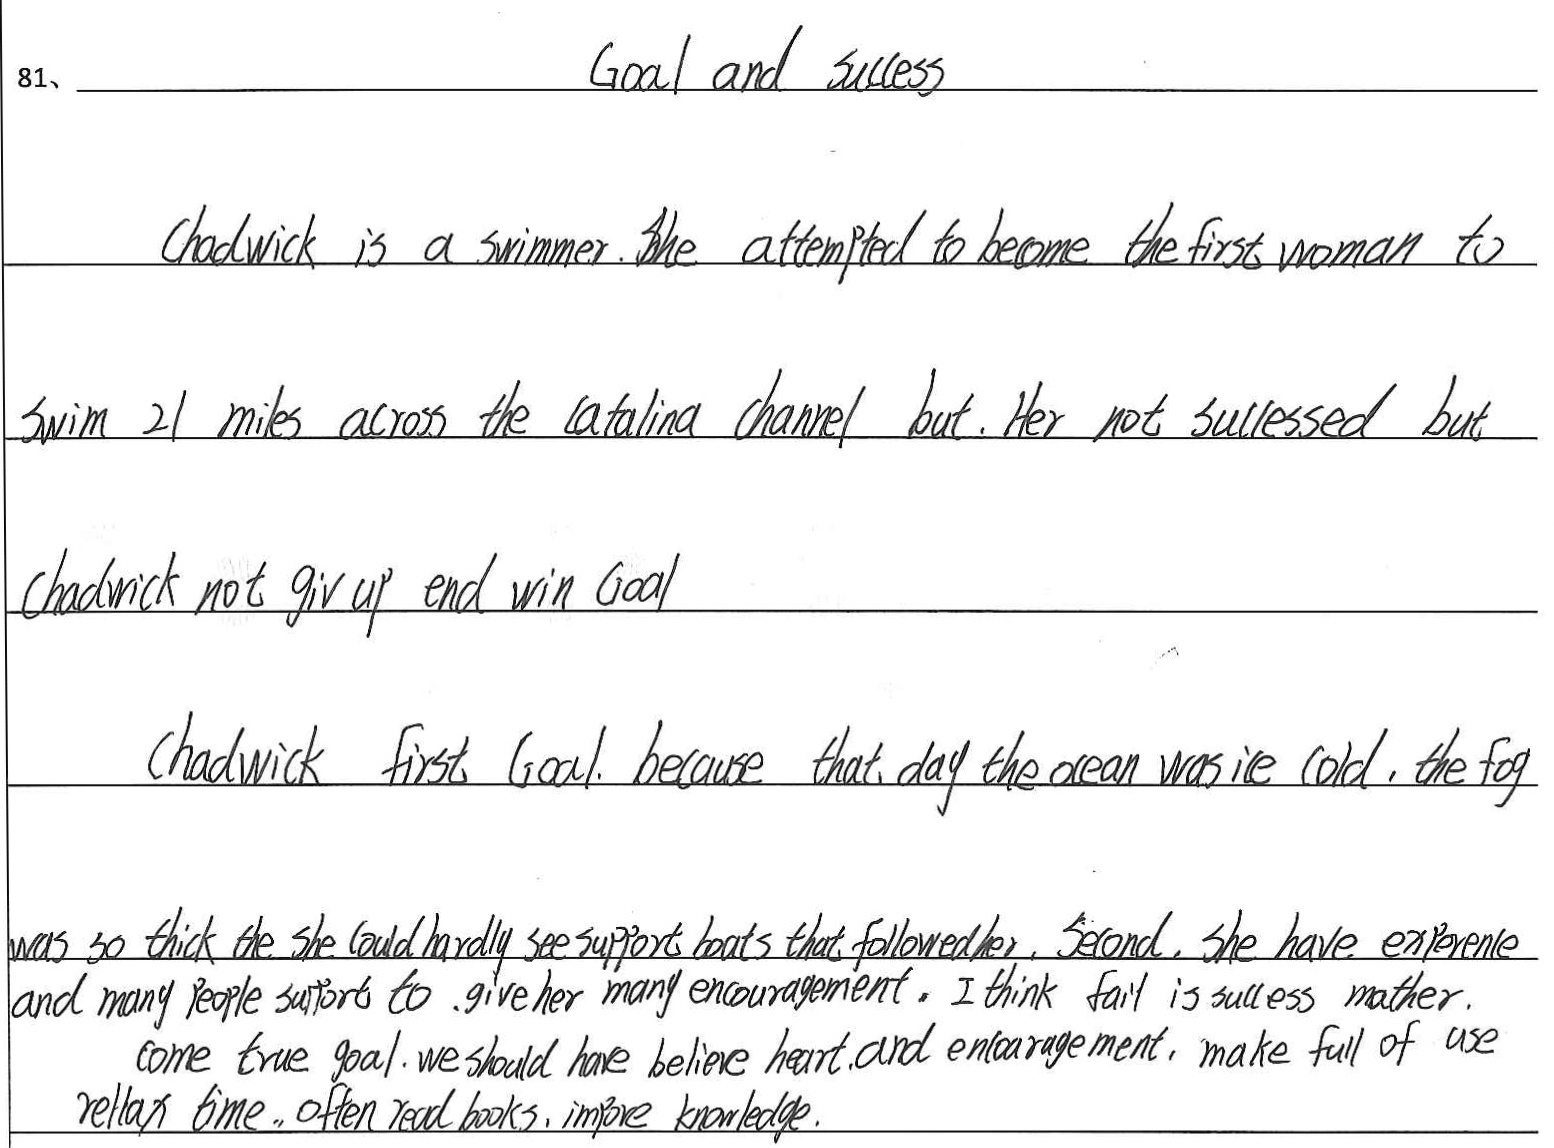 81、 Goal and success
Chadwick is a swimmer. She attempted to become the first woman to
swim 21 miles across the catalina channel but. Her not successed but
chadwick not giv up end win Goal
Chadwick first Goal. because that day the ocean was ice cold. the fog
was so thick the she could hardly see support boats that followed her. Second. she have experence
and many people support to give her many encouragement. I think fail is success mather.
come true goal. we should have believe heart. and encouragement. make full of use
rellax time.. often read books. improve knowledge.